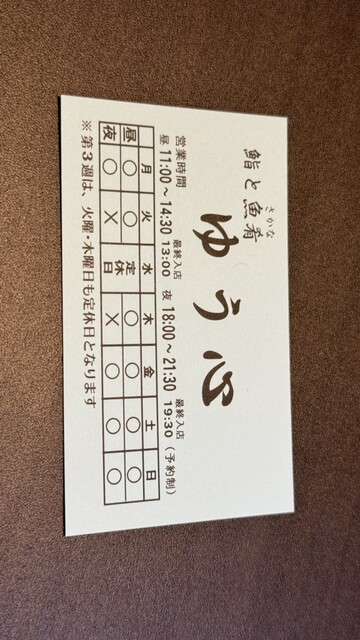 鮨と魚肴
さかな
ゆう心
営業時間
昼 11:00～14:30 最終入店 13:00 夜 18:00～21:30 最終入店 19:30（予約制）
月 火 水 木 金 土 日
昼 ○ ○ 定休日 ○ ○ ○ ○
夜 ○ X X ○ ○ ○
※第3週は、火曜・木曜日も定休日となります